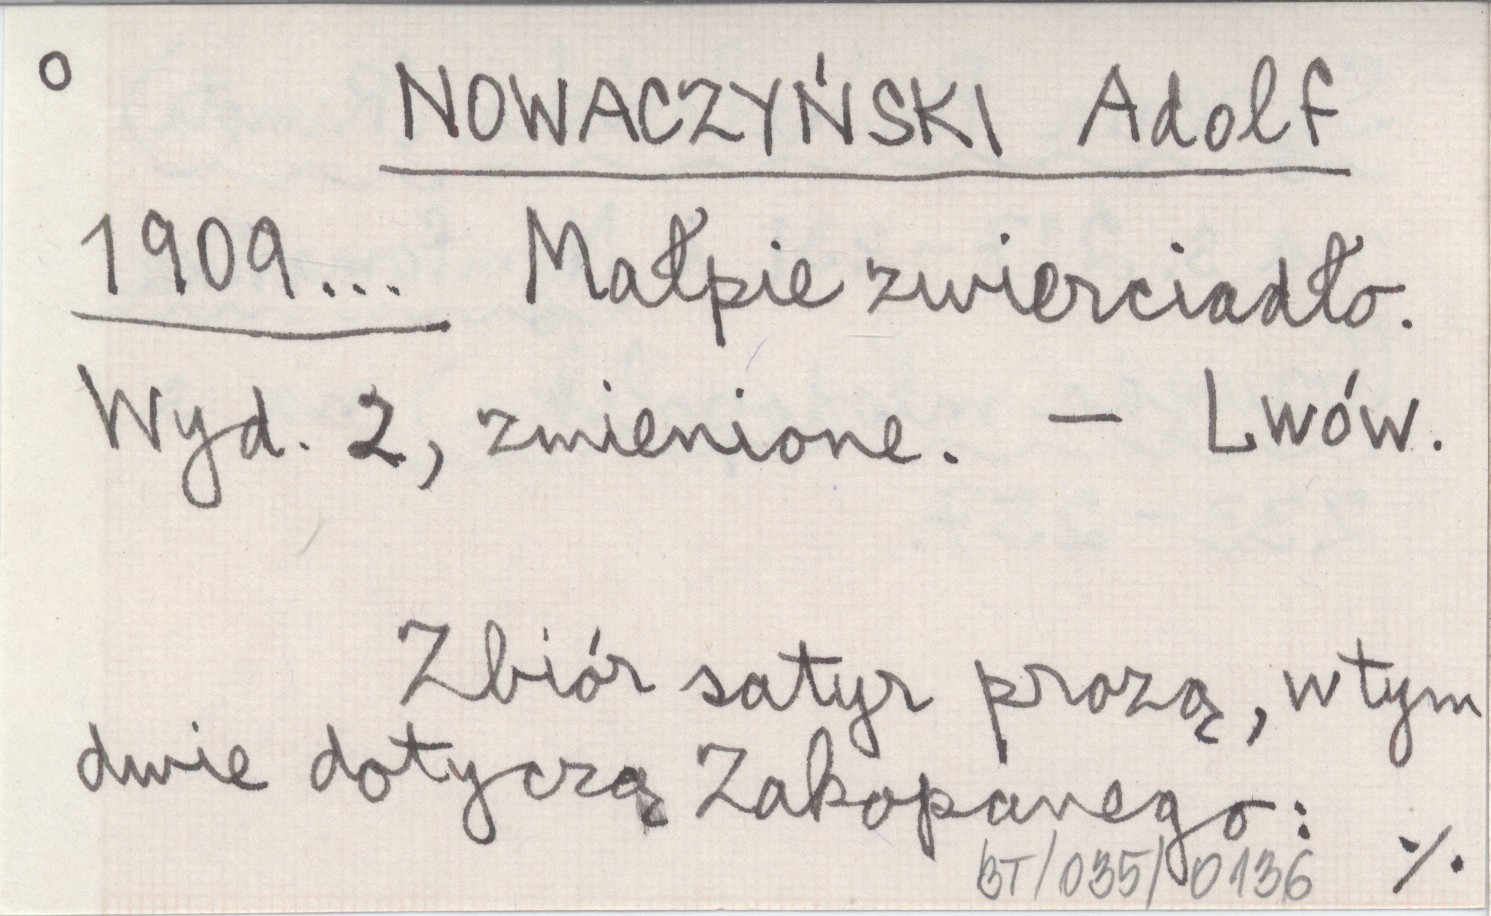 o NOWACZYŃSKI Adolf
1909... Małpie zwierciadło.
Wyd. 2, zmienione. — Lwów.
Zbiór satyr prozą, w tym
dwie dotyczą Zakopanego:
BT/035/0136 ·/.